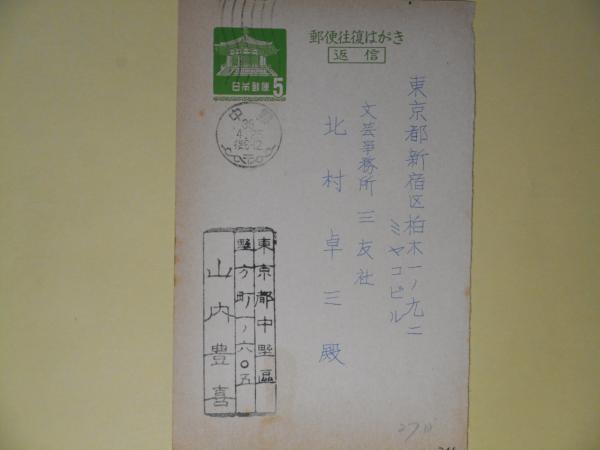 郵便往復はがき
返信
日本郵便 5
中野
38
4.25
後0-12
東京都新宿区柏木一ノ九二
ミヤコビル
文芸事務所三友社
北村卓三殿
東京都中野區
野方町一ノ六〇五
山内豊喜
27日